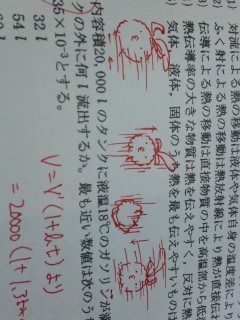 対流による熱の移動は液体や気体自身の温度差により
ふく射による熱の移動は熱放射線により熱が直接伝わ
伝導による熱の移動は直接物質の中を高温部から低
熱伝導率の大きな物質は熱を伝えやすく、反対に熱
気体、液体、固体のうち熱を最も伝えやすいものは
内容積20,000 l のタンクに液温18℃のガソリンが満
クの外に何 l 流出するか。最も近い数値は次のうち
35×10⁻³とする。
32 l
54 l
V=V'(1+α,t) より
=20000(1+1.35×